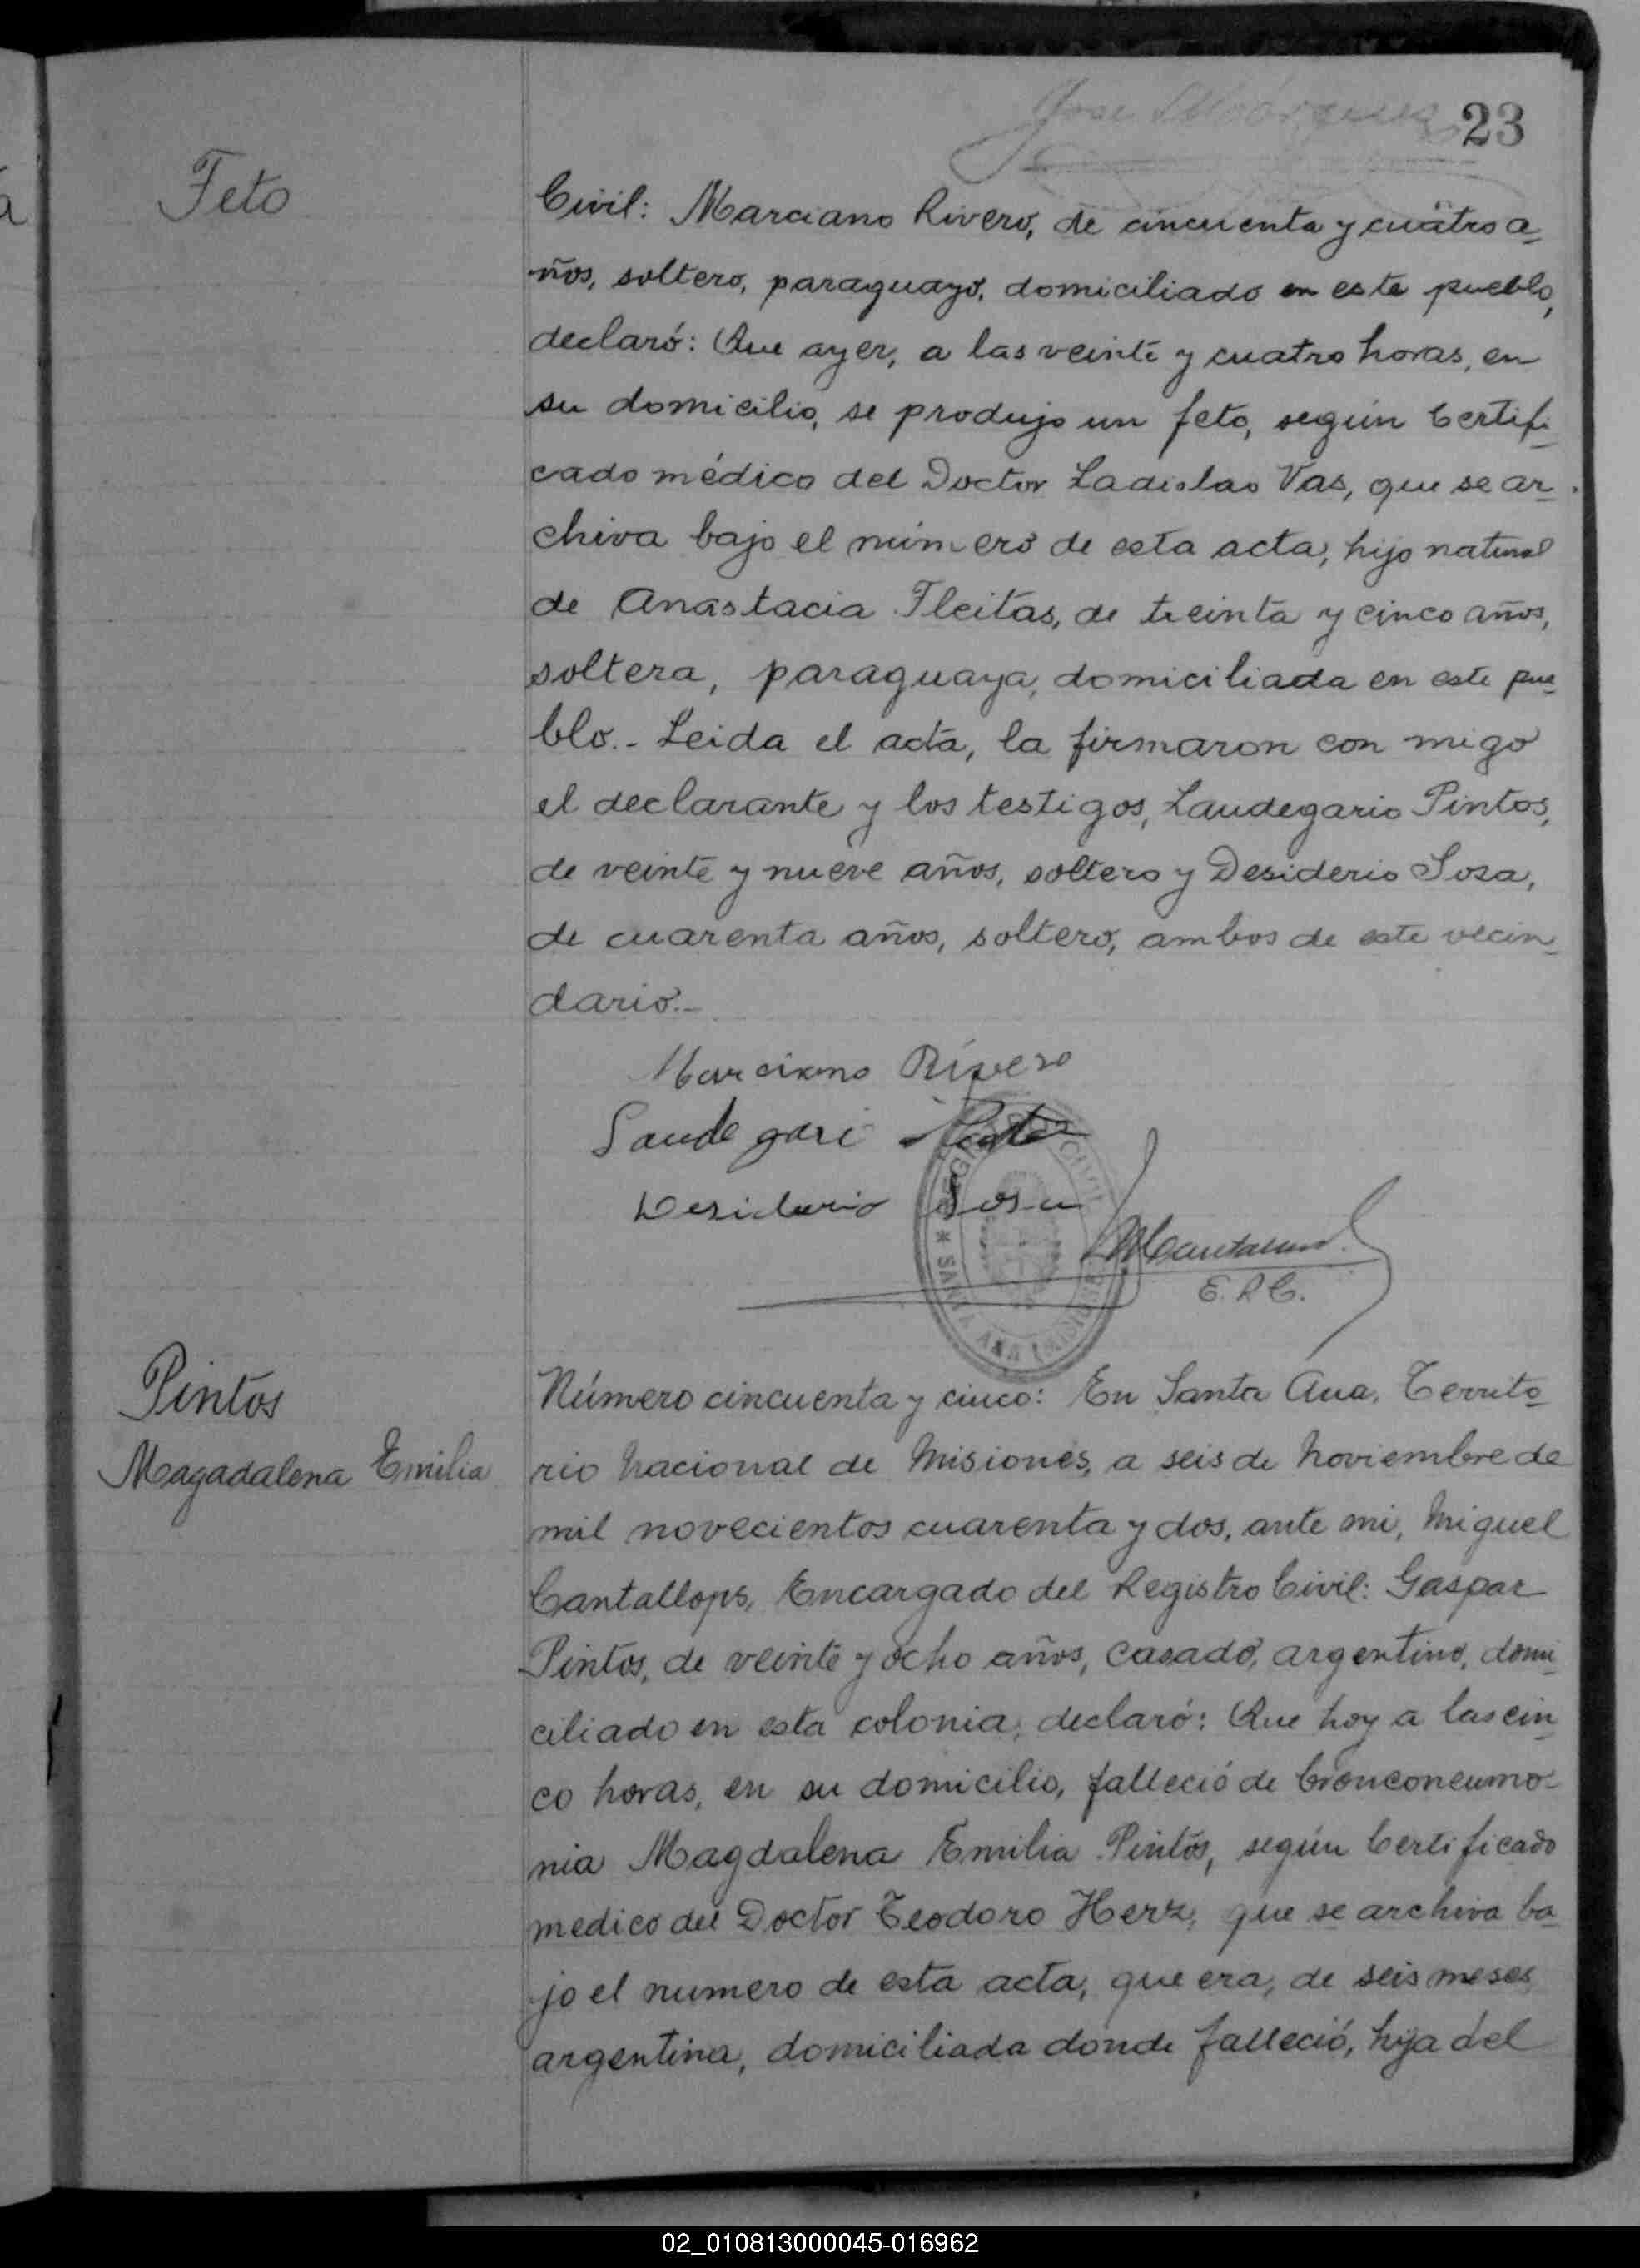 23
Feto
Civil: Marciano Rivero, de cincuenta y cuatro a
ños, soltero, paraguayo, domiciliado en este pueblo,
declaró: Que ayer, a las veinte y cuatro horas, en
su domicilio, se produjo un feto, según Certifi
cado médico del Doctor Ladislao Vas, que se ar
chiva bajo el número de esta acta, hijo natural
de Anastacia Fleitas, de treinta y cinco años,
soltera, paraguaya, domiciliada en este pue
blo.- Leida el acta, la firmaron con migo
el declarante y los testigos, Laudegario Pintos,
de veinte y nueve años, soltero y Desiderio Sosa,
de cuarenta años, soltero, ambos de este vecin
dario.-
Marciano Rivero
Laudegari
Desiderio Sosa
E. R C.
* SANTA ANA (MISIONES
Pintos
Magadalena Emilia
Número cincuenta y cinco: En Santa Ana, Territo
rio Nacional de Misiones, a seis de Noviembre de
mil novecientos cuarenta y dos, ante mi, Miguel
Cantallops, Encargado del Registro Civil: Gaspar
Pintos, de veinte y ocho años, casado, argentino, domi
ciliado en esta colonia, declaró: Que hoy a las cin
co horas, en su domicilio, falleció de bronconeumo
nia Magdalena Emilia Pintos, según Certificado
medico del Doctor Teodoro Herz, que se archiva ba
jo el numero de esta acta, que era, de seis meses
argentina, domiciliada donde falleció, hija del
02_010813000045-016962